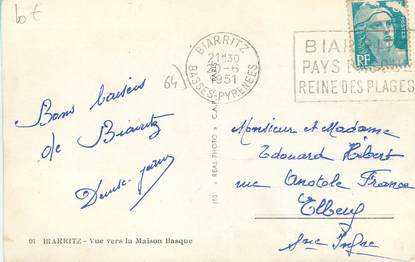 10 €
64
BIARRITZ
21H30
20-6
1951
BASSES-PYRENEES
BIARRITZ
PAYS
REINE DES PLAGES
RF
Bons baisers
de Biarritz
Denise-Jean
Monsieur et Madame
Edouard Hébert
rue Anatole France
Elbeuf
Sne Infre
REAL PHOTO
91 BIARRITZ - Vue vers la Maison Basque